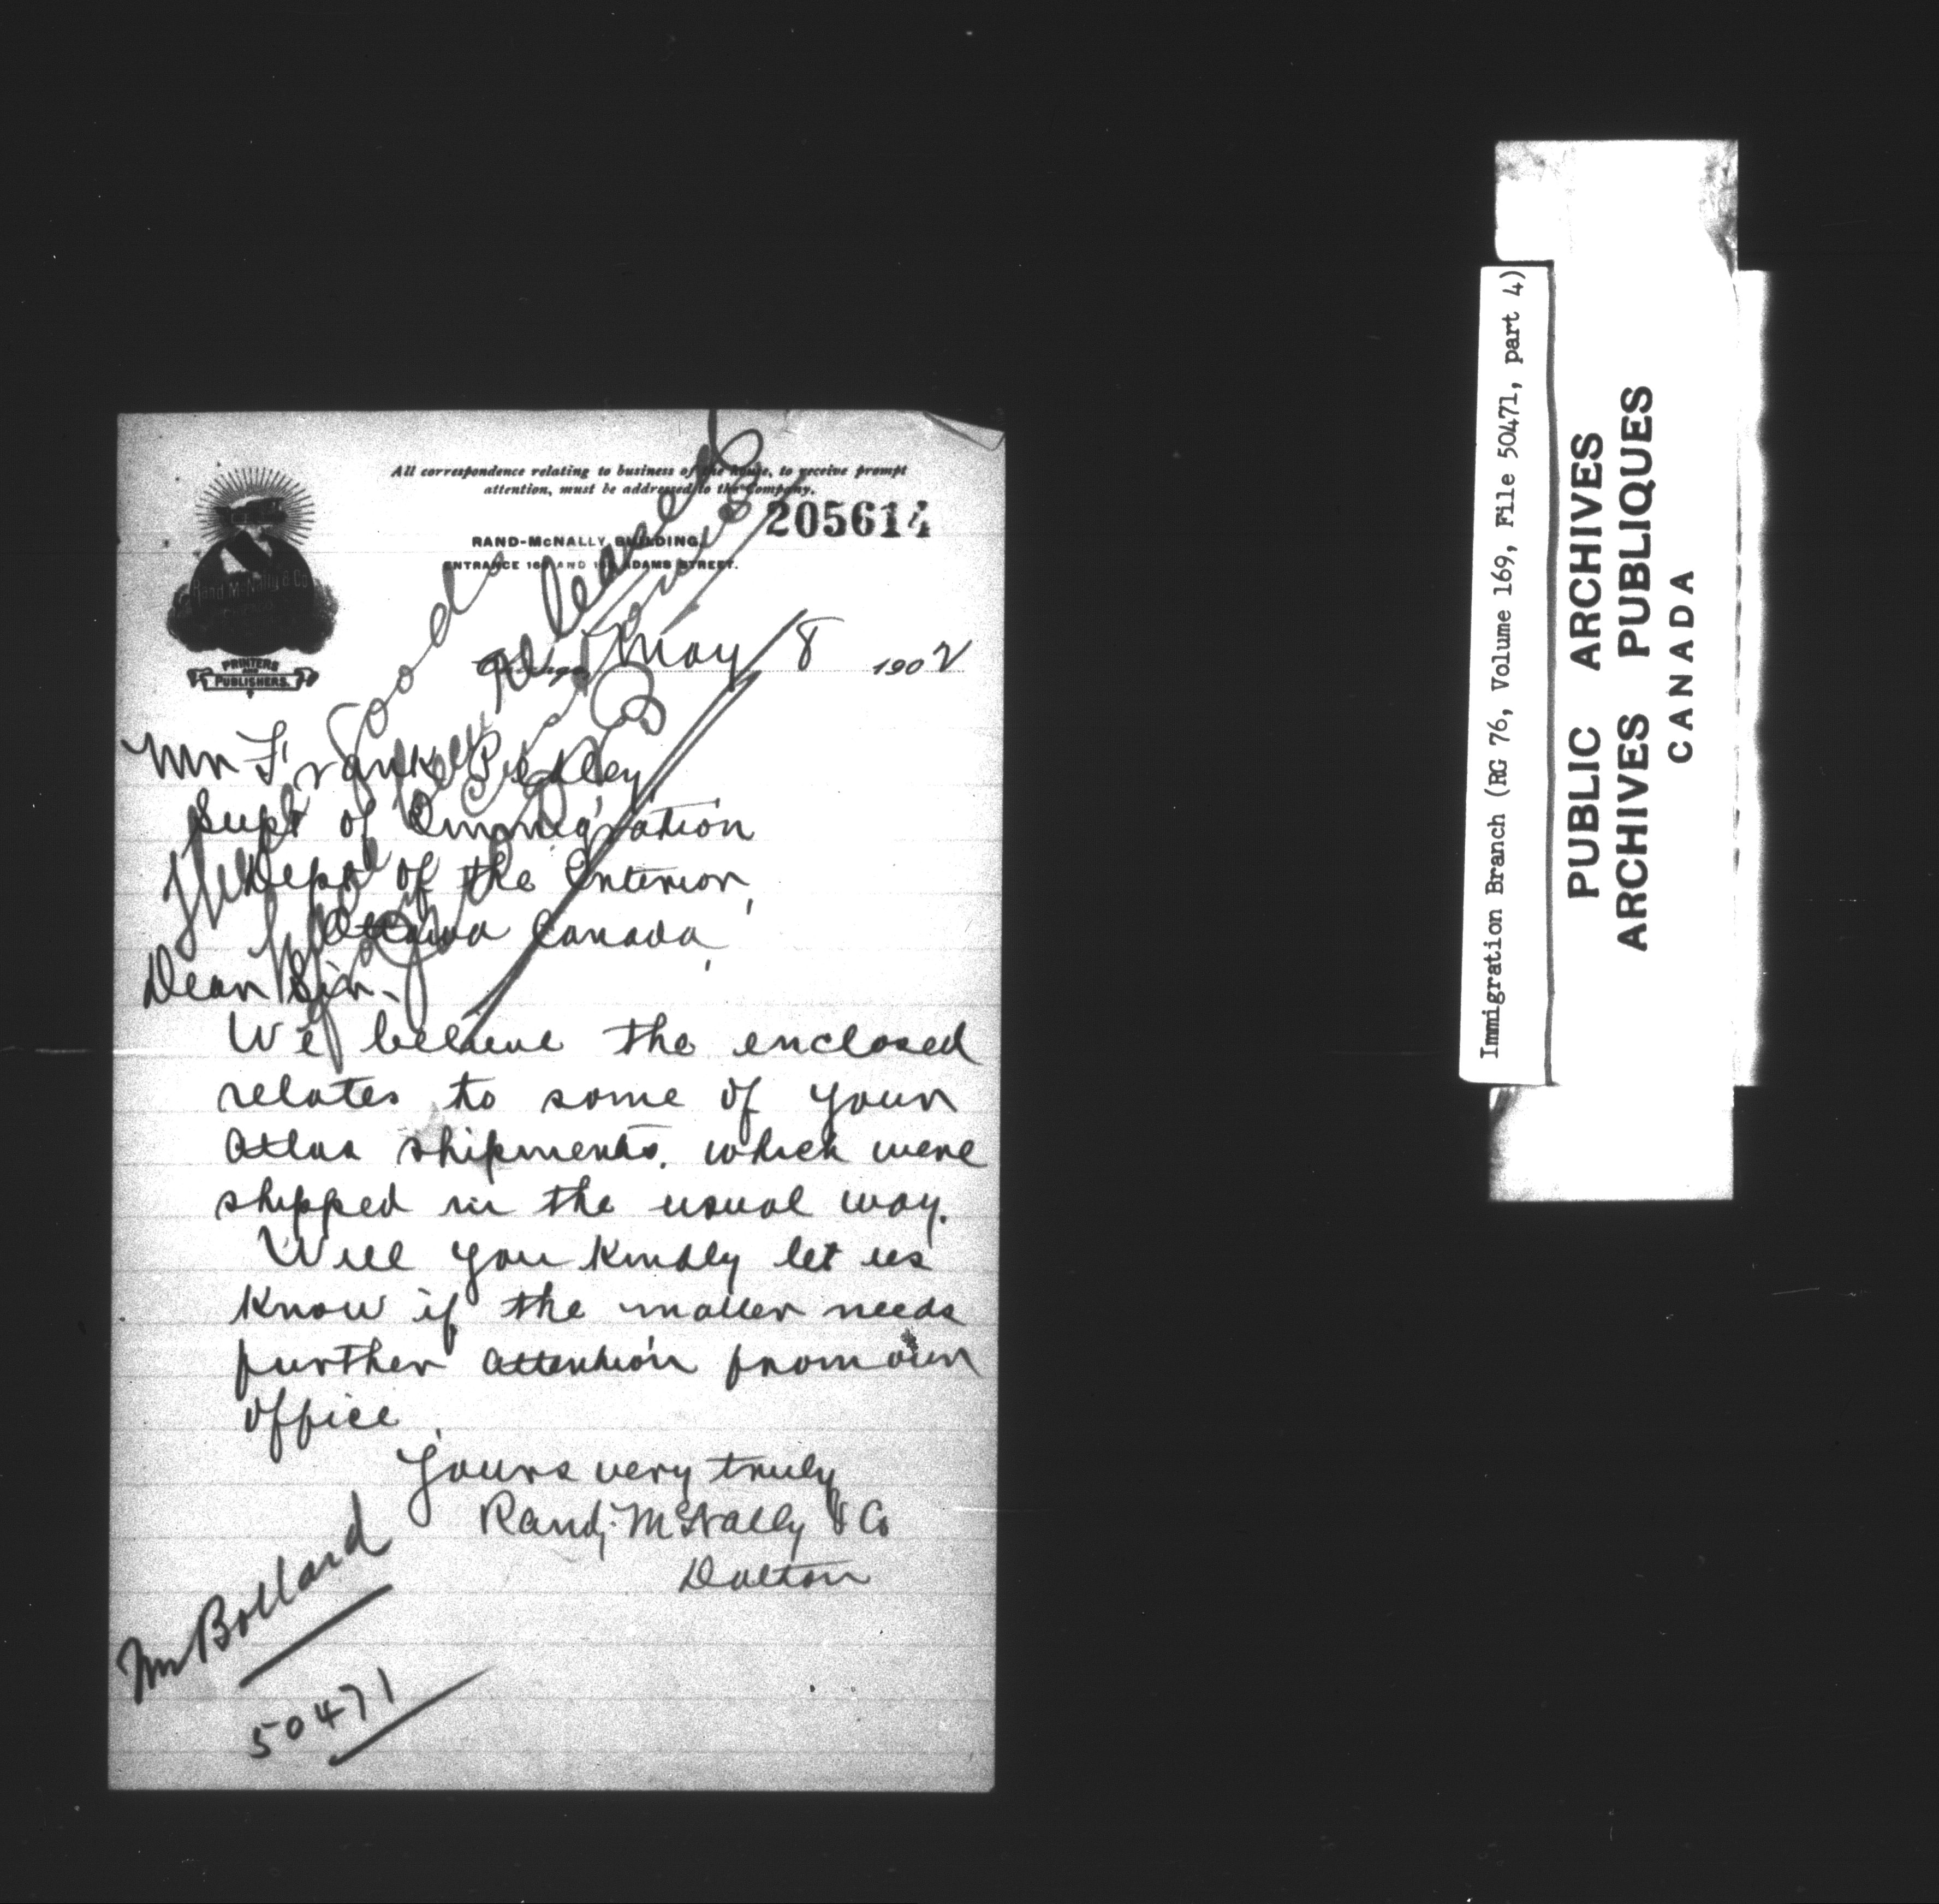 All correspondence relating to business of the house, to receive prompt
attention, must be addressed to the Company.
205614
RAND-McNALLY BUILDING,
ENTRANCE 16 AND 1 ADAMS STREET.
Rand McNally & Co
PRINTERS
AND
PUBLISHERS.
Chicago, May 8 1902
Mr Frank Pedley,
Supt of Immigration
Dept of the Interior,
Ottawa Canada,
Dear Sir.
We believe the enclosed
relates to some of your
Atlas shipments. which were
shipped in the usual way.
Will you kindly let us
know if the matter needs
further attention from our
office.
Yours very truly
Rand, McNally & Co
Dalton
Goods
released
Mr Bollard
50471
Immigration Branch (RG 76, Volume 169, File 50471, part 4)
PUBLIC ARCHIVES
ARCHIVES PUBLIQUES
CANADA